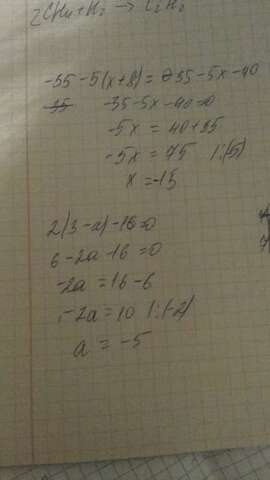 2CH4 + H2 → C2H2
-35 - 5(x+8) = 0 35 - 5x - 40
35 -35-5x-40=0
-5x = 40+35
-5x = 75 |:(5)
x = -15
2(3-a)-16=0
6-2a-16=0
-2a=16-6
-2a=10 |:(-2)
a = -5